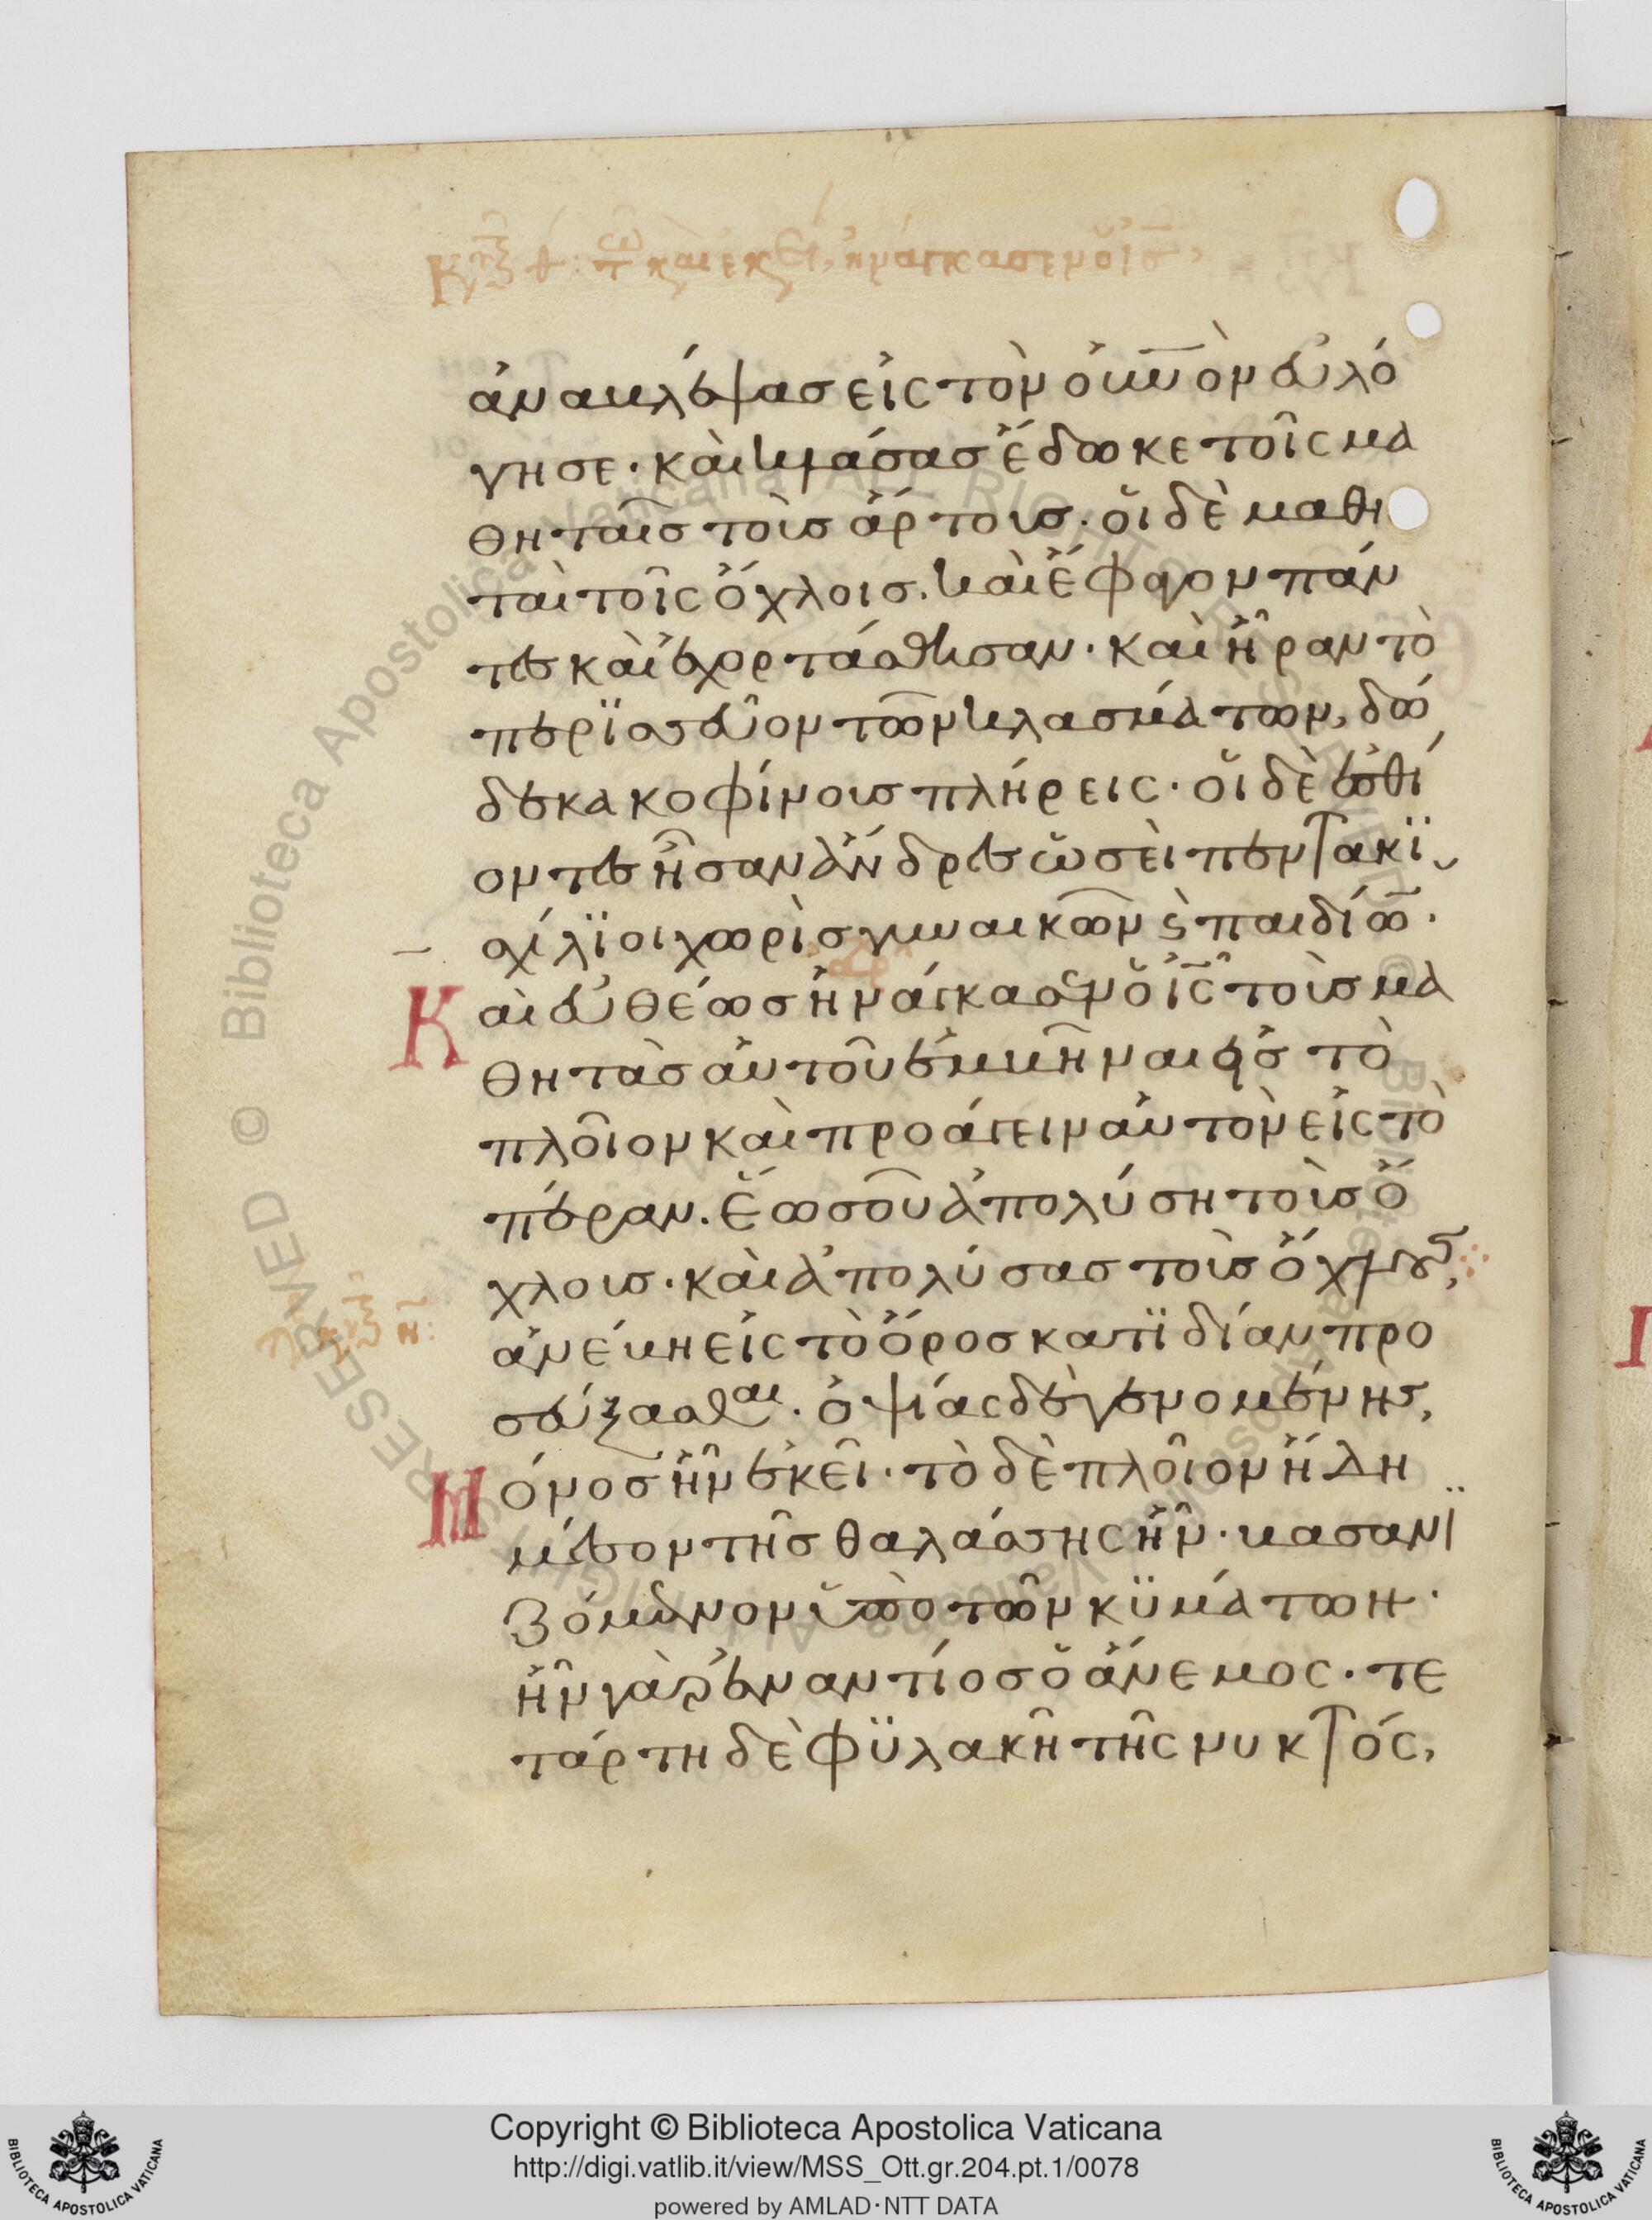 ἀναβλέψας εἰς τὸν οὐνον ἐυλό
γησε· καὶ κλάσας ἔδωκε τοῖς μα
θηταῖς τοὺς ἄρτους· ὁι δὲ μαθη
ταὶ τοῖς ὄχλοις. καὶ ἔφαγον πάν
τες καὶ ἐχορτάσθησαν· καὶ ἦραν τὸ
περϊσσεῦον τῶν κλασμάτων, δώ
δεκα κοφίνους πλήρεις· ὁι δὲ ἐσθί
οντες ἦσαν ἄνδρες ὡσεὶ πεντακϊσ
χίλϊοι χωρὶς γυναικῶν ϛ παιδίω̅·
Καὶ ἐυθέως ἠνάγκασεν ὁ ις̅ τοὺς μα
θητὰς ἀυτοῦ ἐμβῆναι εἰς τὸ
πλοῖον καὶ προάγειν ἀυτὸν εἰς τὸ
πέραν. ἕως οὗ ἀπολύση τοὺς ὄ
χλους· καὶ ἀπολύσας τοὺς ὄχλους,
ἀνέβη εἰς τὸ ὄρος κατϊδίαν προ
σεύξασθαι· ὀψίας δὲ γενομένης,
Μόνος ἦν ἐκεῖ· τὸ δὲ πλοῖον ἤδη
μέσον τῆς θαλάσσης ἦν· βασανϊ
ζόμενον ὑπὸ τῶν κϋμάτων·
ἦν γὰρ ἐναντίος ὁ ἄνεμος· τε
τάρτη δὲ φϋλακῆ τῆς νυκτός,
Copyright © Biblioteca Apostolica Vaticana
http://digi.vatlib.it/view/MSS_Ott.gr.204.pt.1/0078
powered by AMLAD·NTT DATA
BIBLIOTECA APOSTOLICA VATICANA
BIBLIOTECA APOSTOLICA VATICANA